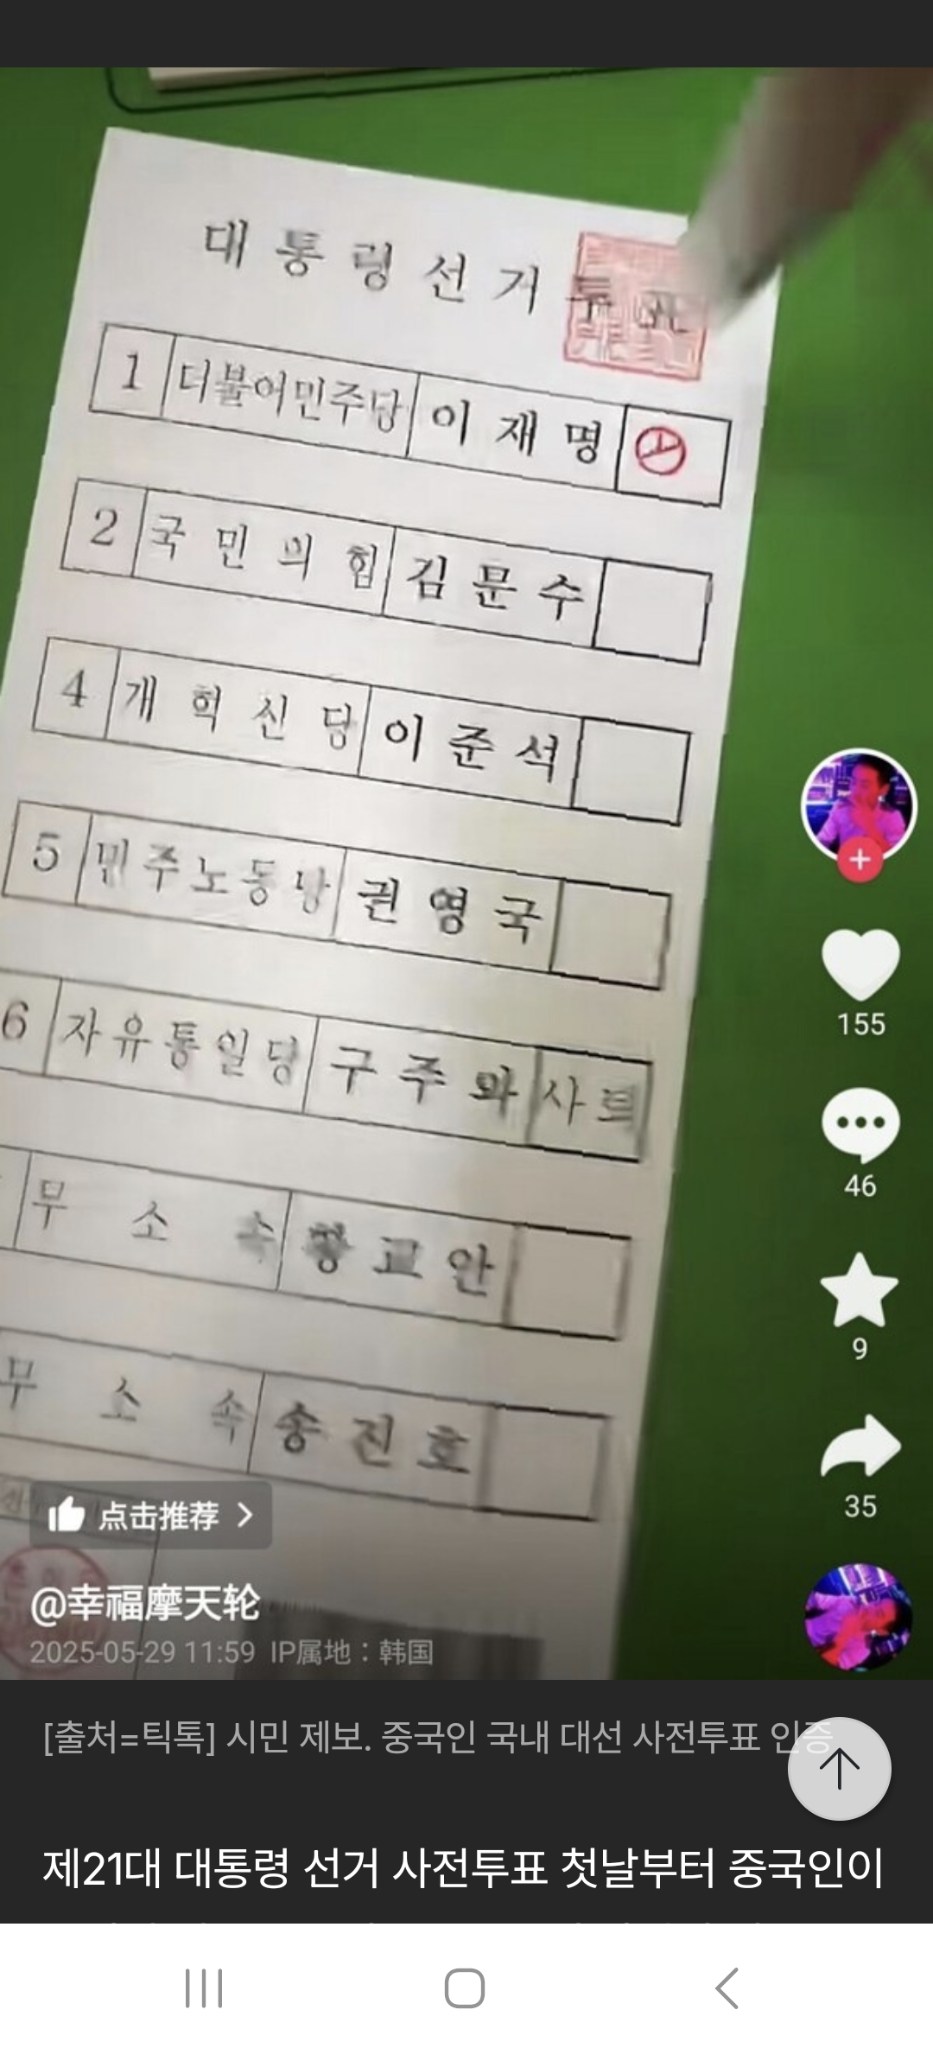 대통령선거투표
1 더불어민주당 이재명
2 국민의힘 김문수
4 개혁신당 이준석
155
5 민주노동당 권영국
46
6 자유통일당 구주와 사퇴
무소속 황교안
9
무소속 송진호
35
点击推荐 >
@幸福摩天轮
2025-05-29 11:59 IP属地：韩国
[출처=틱톡] 시민 제보. 중국인 국내 대선 사전투표 인증
제21대 대통령 선거 사전투표 첫날부터 중국인이